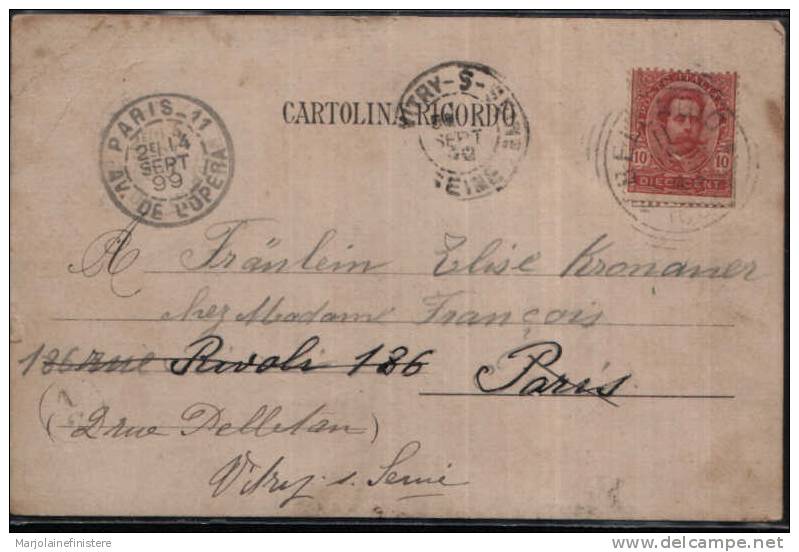 CARTOLINA RICORDO
PARIS-11
2E 14
SEPT
99
AV. DE L'OPERA
VITRY-S-SEINE
SEPT
SEINE
10 10
DIECI CENT
A Fräulein Elise Kronauer
chez Madame François
136 rue Rivoli 136 Paris
(2 rue Pelletan)
Vitry s. Seine
Marjolainefinistere
www.delcampe.net